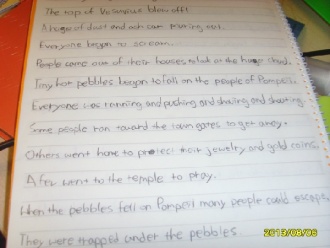 The top of Vesuvius blew off!
A huge of dust and ash came pouring out.
Everyone began to scream.
People came out of their houses to look at the huge cloud.
Tiny hot pebbles began to fall on the people of Pompeii.
Everyone was running and pushing and shoving and shouting.
Some people ran toward the town gates to get away.
Others went home to protect their jewelry and gold coins.
A few went to the temple to pray.
When the pebbles fell on Pompeii many people could escape.
They were trapped under the pebbles.
2013/08/06